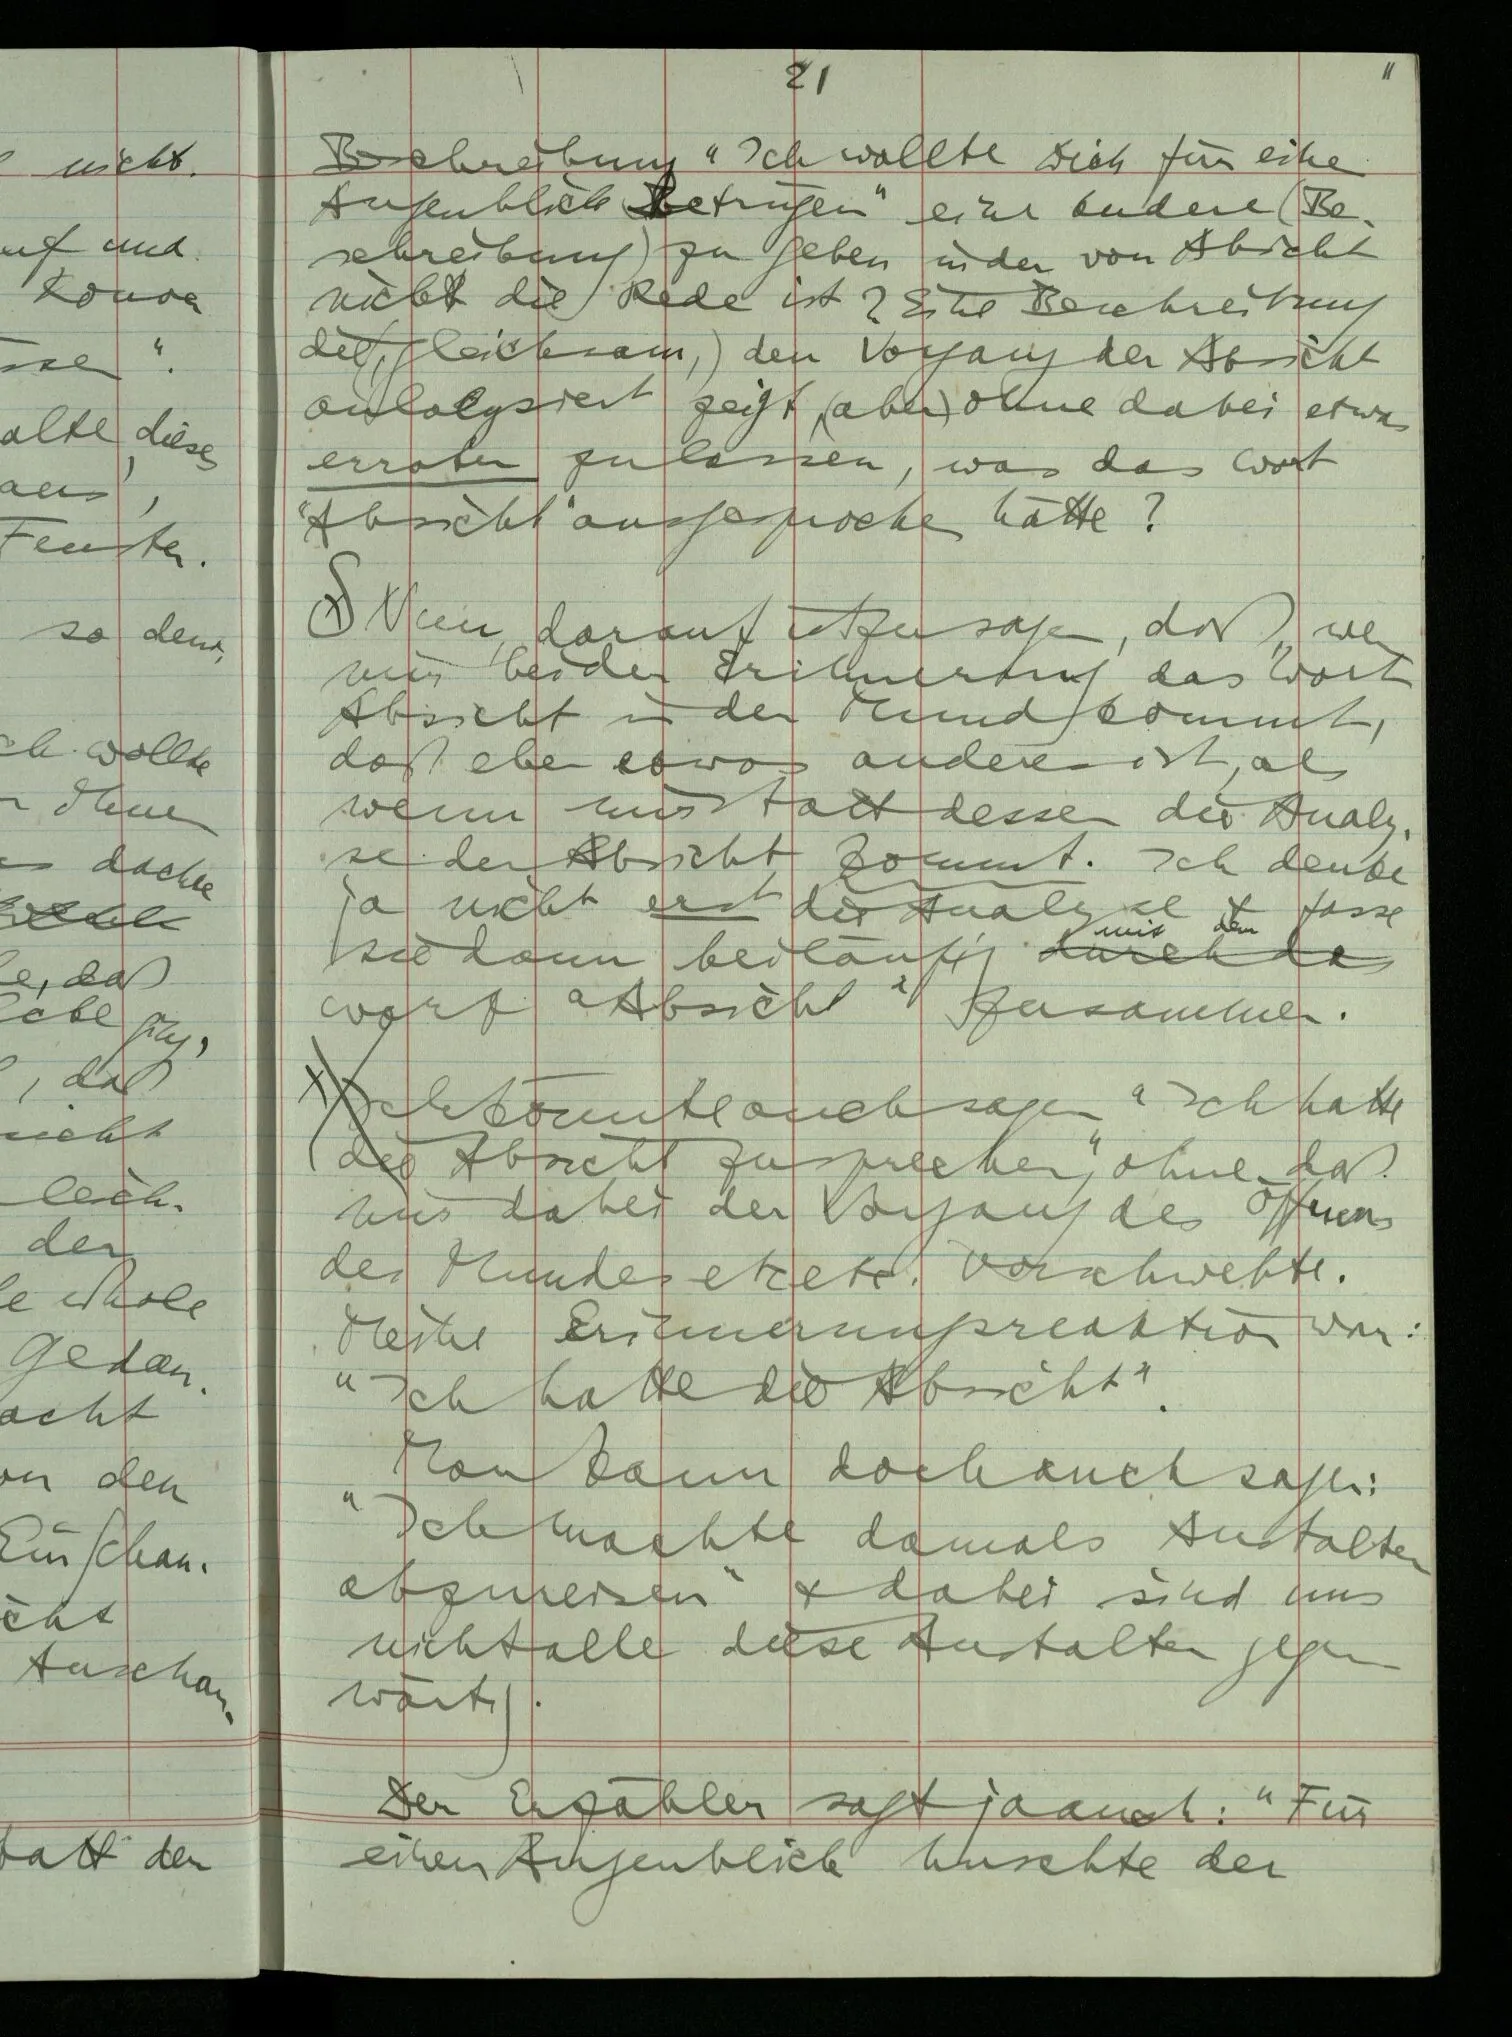 21
"
Beschreibung "Ich wollte Dich für eine
Augenblick Betrügen" eine andere (Be-
schreibung) zu geben in der von Absicht
nicht die Rede ist? Eine Beschreibung
die (, gleichsam,) den Vorgang der Absicht
analysiert zeigt, (aber) ohne dabei etwas
erraten zu lassen, was das Wort
"Absicht" ausgesprochen hätte?
Nun, darauf ist zu sagen, daß, wen
mir bei der Erinnerung das Wort
Absicht in den Mund kommt,
daß eben etwas anderes ist, als
wenn mir statt dessen die Analy-
se der Absicht kommt. Ich denke
ja nicht erst die Analyse & fasse
sie dann beiläufig durch das
mit dem
Wort "Absicht" zusammen.
x Ich könnte auch sagen "Ich hatte
die Absicht zu sprechen", ohne daß
mir dabei der Vorgang des Öffnens
des Mundes etc etc. vorschwebte.
Meine Erinnerungsreaktion war:
"Ich hatte die Absicht".
Man kann doch auch sagen:
"Ich machte damals Anstalten
abzureisen" & dabei sind uns
nicht alle diese Anstalten gegen
wärtig.
Der Erzähler sagt ja auch: "Für
einen Augenblick huschte der
nicht.
uf und
".
alte, dieses
aus,
Fenster.
so denn,
ch wollte
ohne
dachte
e, daß
, daß
nicht
leich-
der
Gedan-
acht
on den
Anschau-
statt der